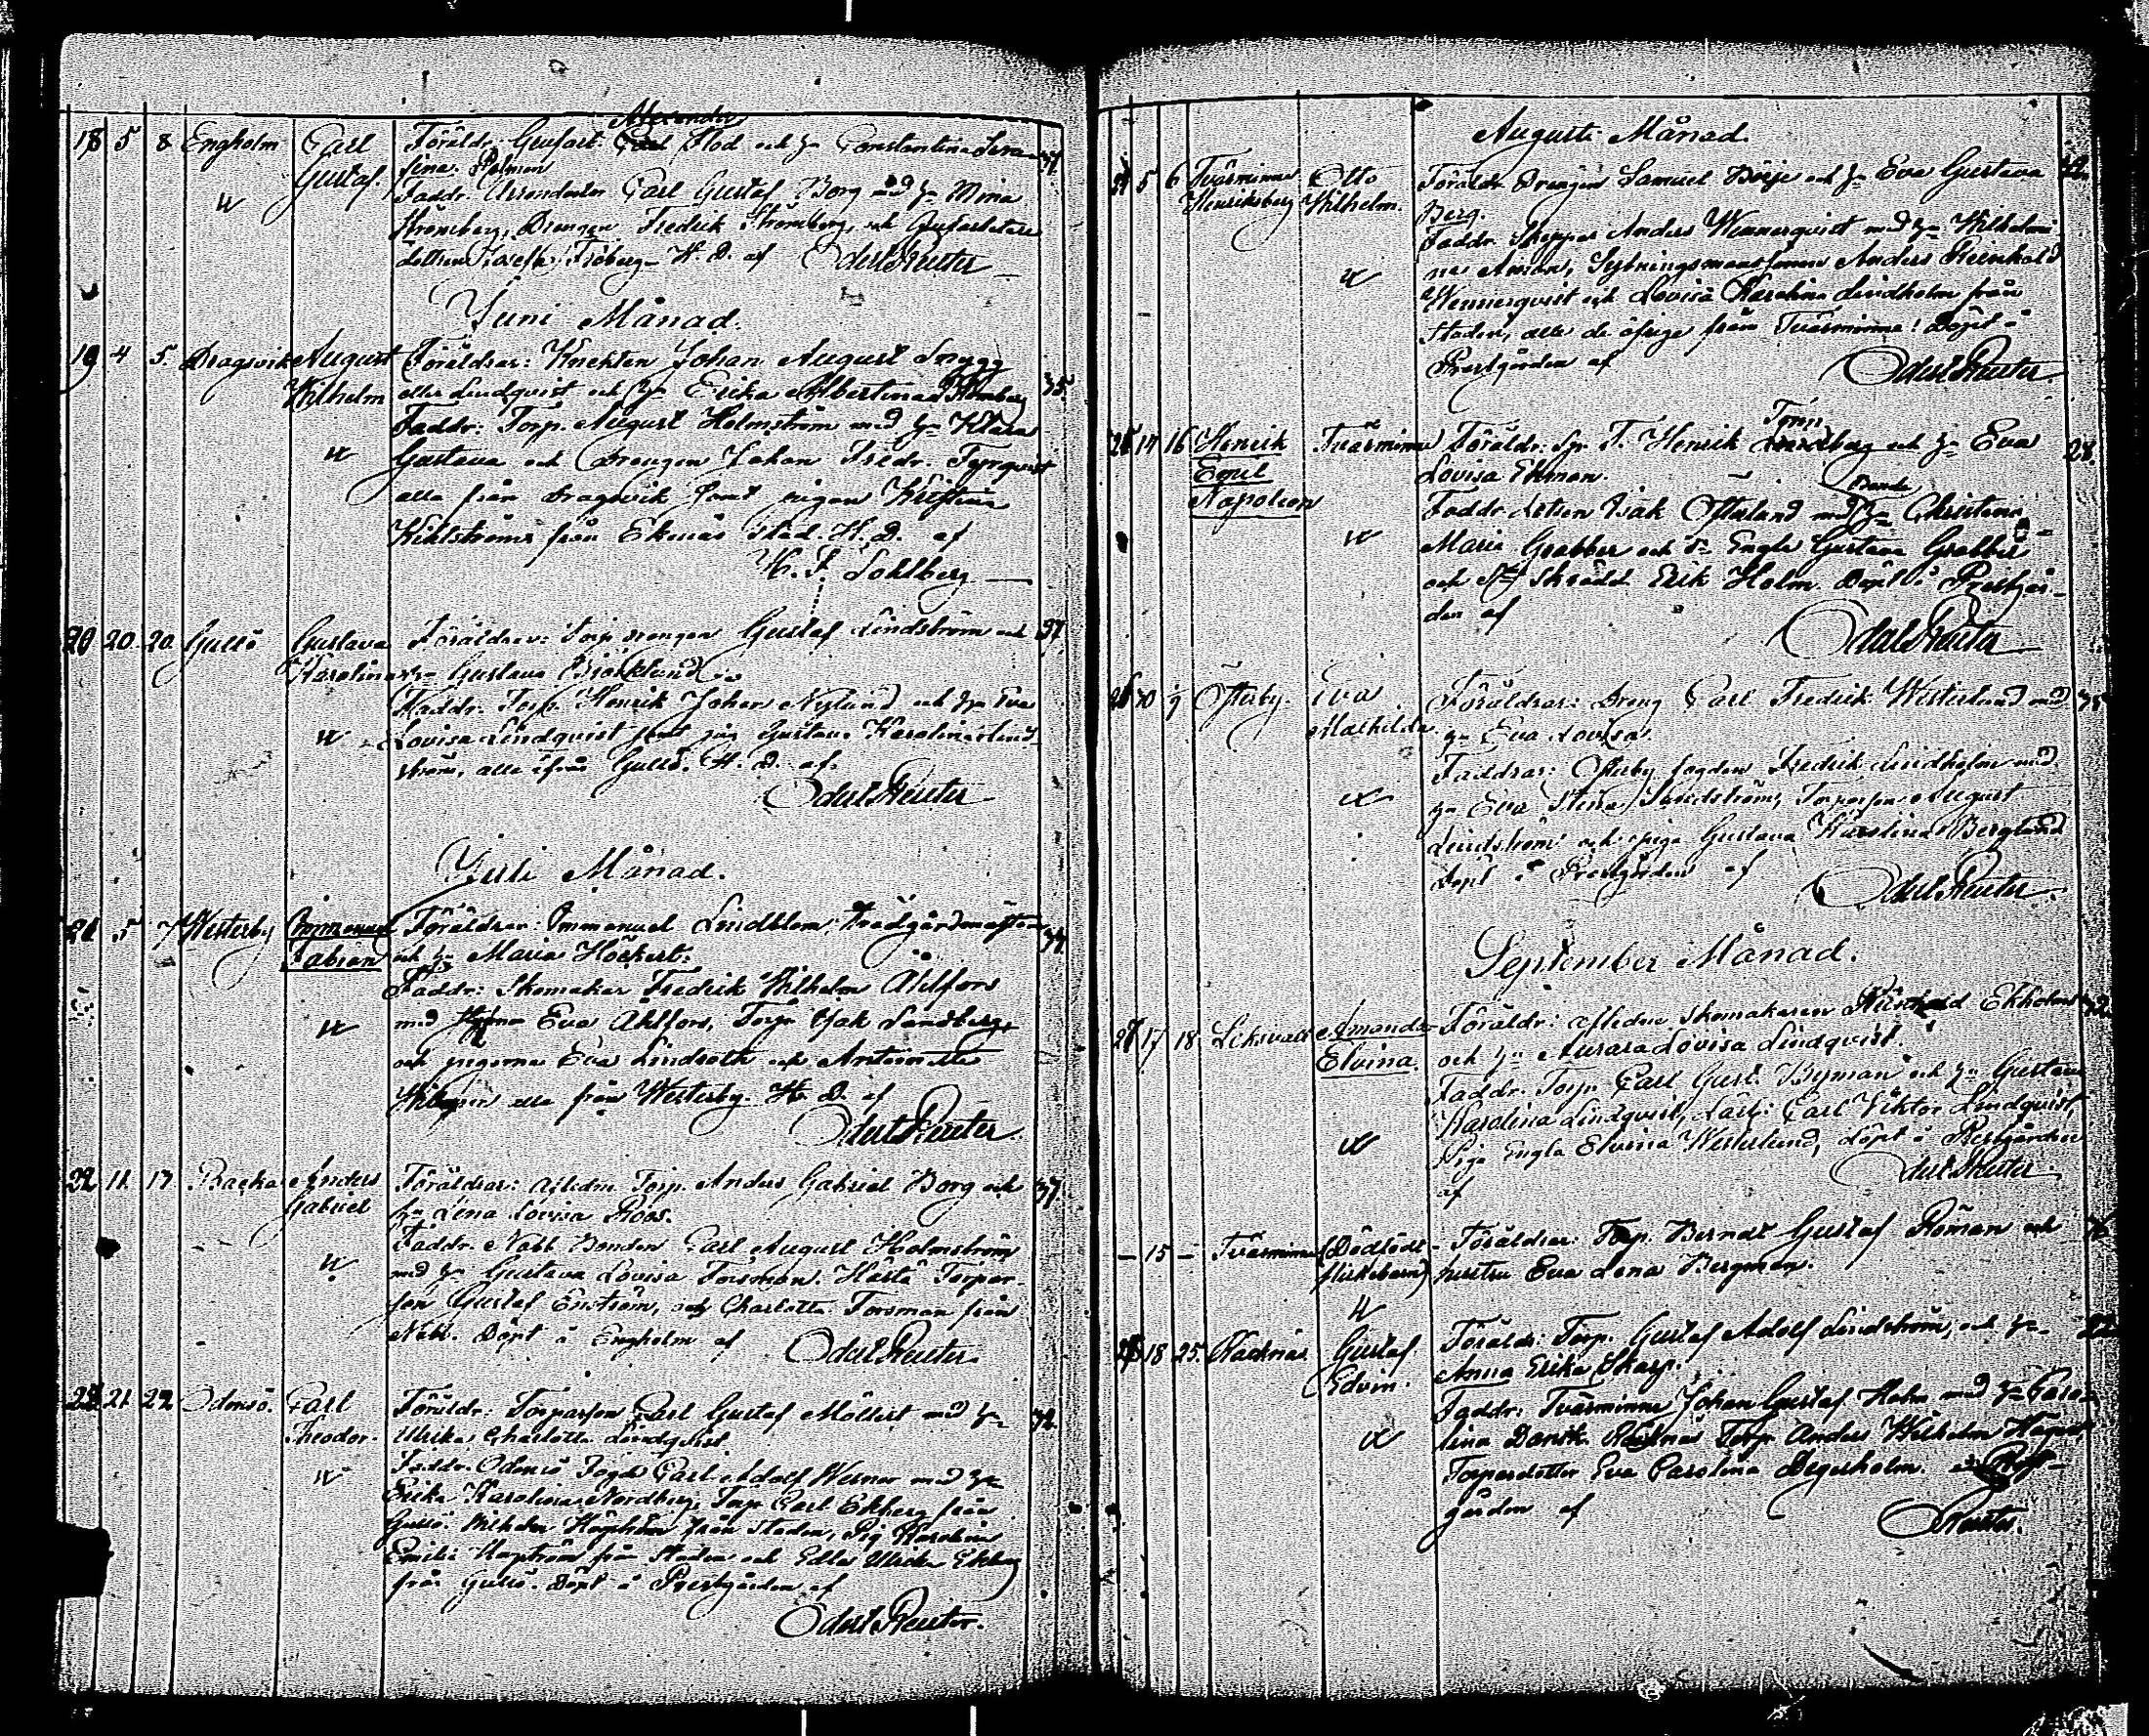 18 5 8 Engholm Carl Gustaf. Föräldr. Grufarb. Alexander Flod och h. Constantina Sera- 37
fina Holman
Faddr. Arrendator Carl Gustaf Borg med h. Mina
Strömberg, Drengen Fredrik Strömberg, och Grufarbetare
dottren Josefa Fröberg. H. D. af Odert Reuter
Juni Månad.
19 4 5 Dragsvik August Wilhelm Föräldrar: Knekten Johan August Snygg
eller Lindqvist och h. Erika Albertina 35
Faddr: Torp. August Holmström med h. Klara
Gustava och Drengen Johan Fredr. Fyrqvist
alla från Dragsvik samt pigan Kristina
Wikström från Ekenäs Stad. H. D. af
K. F. Sohlberg
20 20 20 Gullö Gustava Karolina Föräldrar: Torp. drengen Gustaf Lindström och 37
h. Gustava Björklund.
Faddr. Torp. Henrik Johan Nylund och h. Eva
Lovisa Lindqvist samt pig Gustava Karolina Lind-
ström, alla ifrån Gullö. H. D. af
Odert Reuter
Juli Månad.
21 5 7 Westerby Immanuel Fabian Föräldrar: Immanuel Lindblom, Trädgårdsmästare
och h. Maria Höckert. 34
Faddr: Skomakar Fredrik Wilhelm Ahlfors
med Eva Ahlfors, Torp. Isak Sandberg,
och pigorna Eva Lindroth och Antoinette
alla från Westerby. H. D. af
Odert Reuter.
22 11 17 Backa Anders Gabriel Föräldrar: aflidne Torp. Anders Gabriel Borg och 37
h. Lena Lovisa Roos.
Faddr. Nabb Bonden Carl August Holmström
med h. Gustava Lovisa Forsman. Torpar-
son Gustaf Enström, och Charlotta Forsman från
Nabb. Döpt å Engholm af Odert Reuter.
23 21 22 Odensö. Carl Theodor. Föräldr: Torparson Carl Gustaf Möllert med h. 32
Ulrika Charlotta Lindqvist.
Faddr. Odensö Fogde Carl Adolf Werner med h.
Erika Karolina Nordberg, Torp. Carl Ekberg från
Gullö. Wilhelm Högström från staden, Pig Karolina
Emilia från staden och Edla Ulrika Ekberg
från Gullö. Döpt å Prestgården af
Odert Reuter.
Augusti Månad.
24 5 6 Tvärminne Henriksberg Otto Wilhelm. Föräldr. Drengen Samuel Börje och h. Eva Gustava
Berg.
Faddr. Skeppar Anders Wennerqvist med h. Wilhelmi-
na Lydningsmanssonen Anders Reinhold
Wennerqvist och Lovisa Karolina Lindholm från
staden, alla de öfriga från Tvärminne! Döpt å
Prestgården af
Odert Reuter.
25 14 16 Henrik Emil Napoleon Tvärminne Föräldr. Sp. T. Henrik och h. Eva 28.
Lovisa Ekman.
Faddr. Lotsen Isak Österlund med h. Christina
Maria Grabber och Engla Gustava Grabber
och Skrädd. Erik Holm. Döpt å Prestgår-
den af
Odert Reuter
26 30 Österby. Eva Mathilda Föräldrar: Dreng Carl Fredrik Westerlund med
h. Eva Lovisa.
Faddrar: Österby fogden Fredrik Lindholm med
h. Eva Stina Sundström, Torparson August
Lindström och piga Gustava Karolina Berglund
döpt å Prestgården af
Odert Reuter.
September Månad.
27 17 18 Leksvall Amanda Elvina. Föräldr: aflidne Skomakaren Ekholm
och h. Aurora Lovisa Lindqvist.
Faddr. Torp. Carl Gust. Byman och h. Gustava
Karolina Lindqvist, Lärl: Carl Viktor Lindqvist,
Piga Engla Elvina Westerlund, döpt å Prestgården
af Odert Reuter.
— 15 — Tvärminne (Dödfödt flickebarn) Föräldrar: Bernat Gustaf Roman och
hustru Eva Lena Bergman.
28 18 25. Gustaf Edvin. Föräldr: Torp. Gustaf Adolf Lindström, och h.
Anna Erika Skarp.
Faddr: Tvärminne Johan Gustaf Holm med h. Caro-
lina Dansk. Torp. Anders Wilhelm
Torparedotter Eva Carolina Degerholm. Prest-
gården af
Reuter.